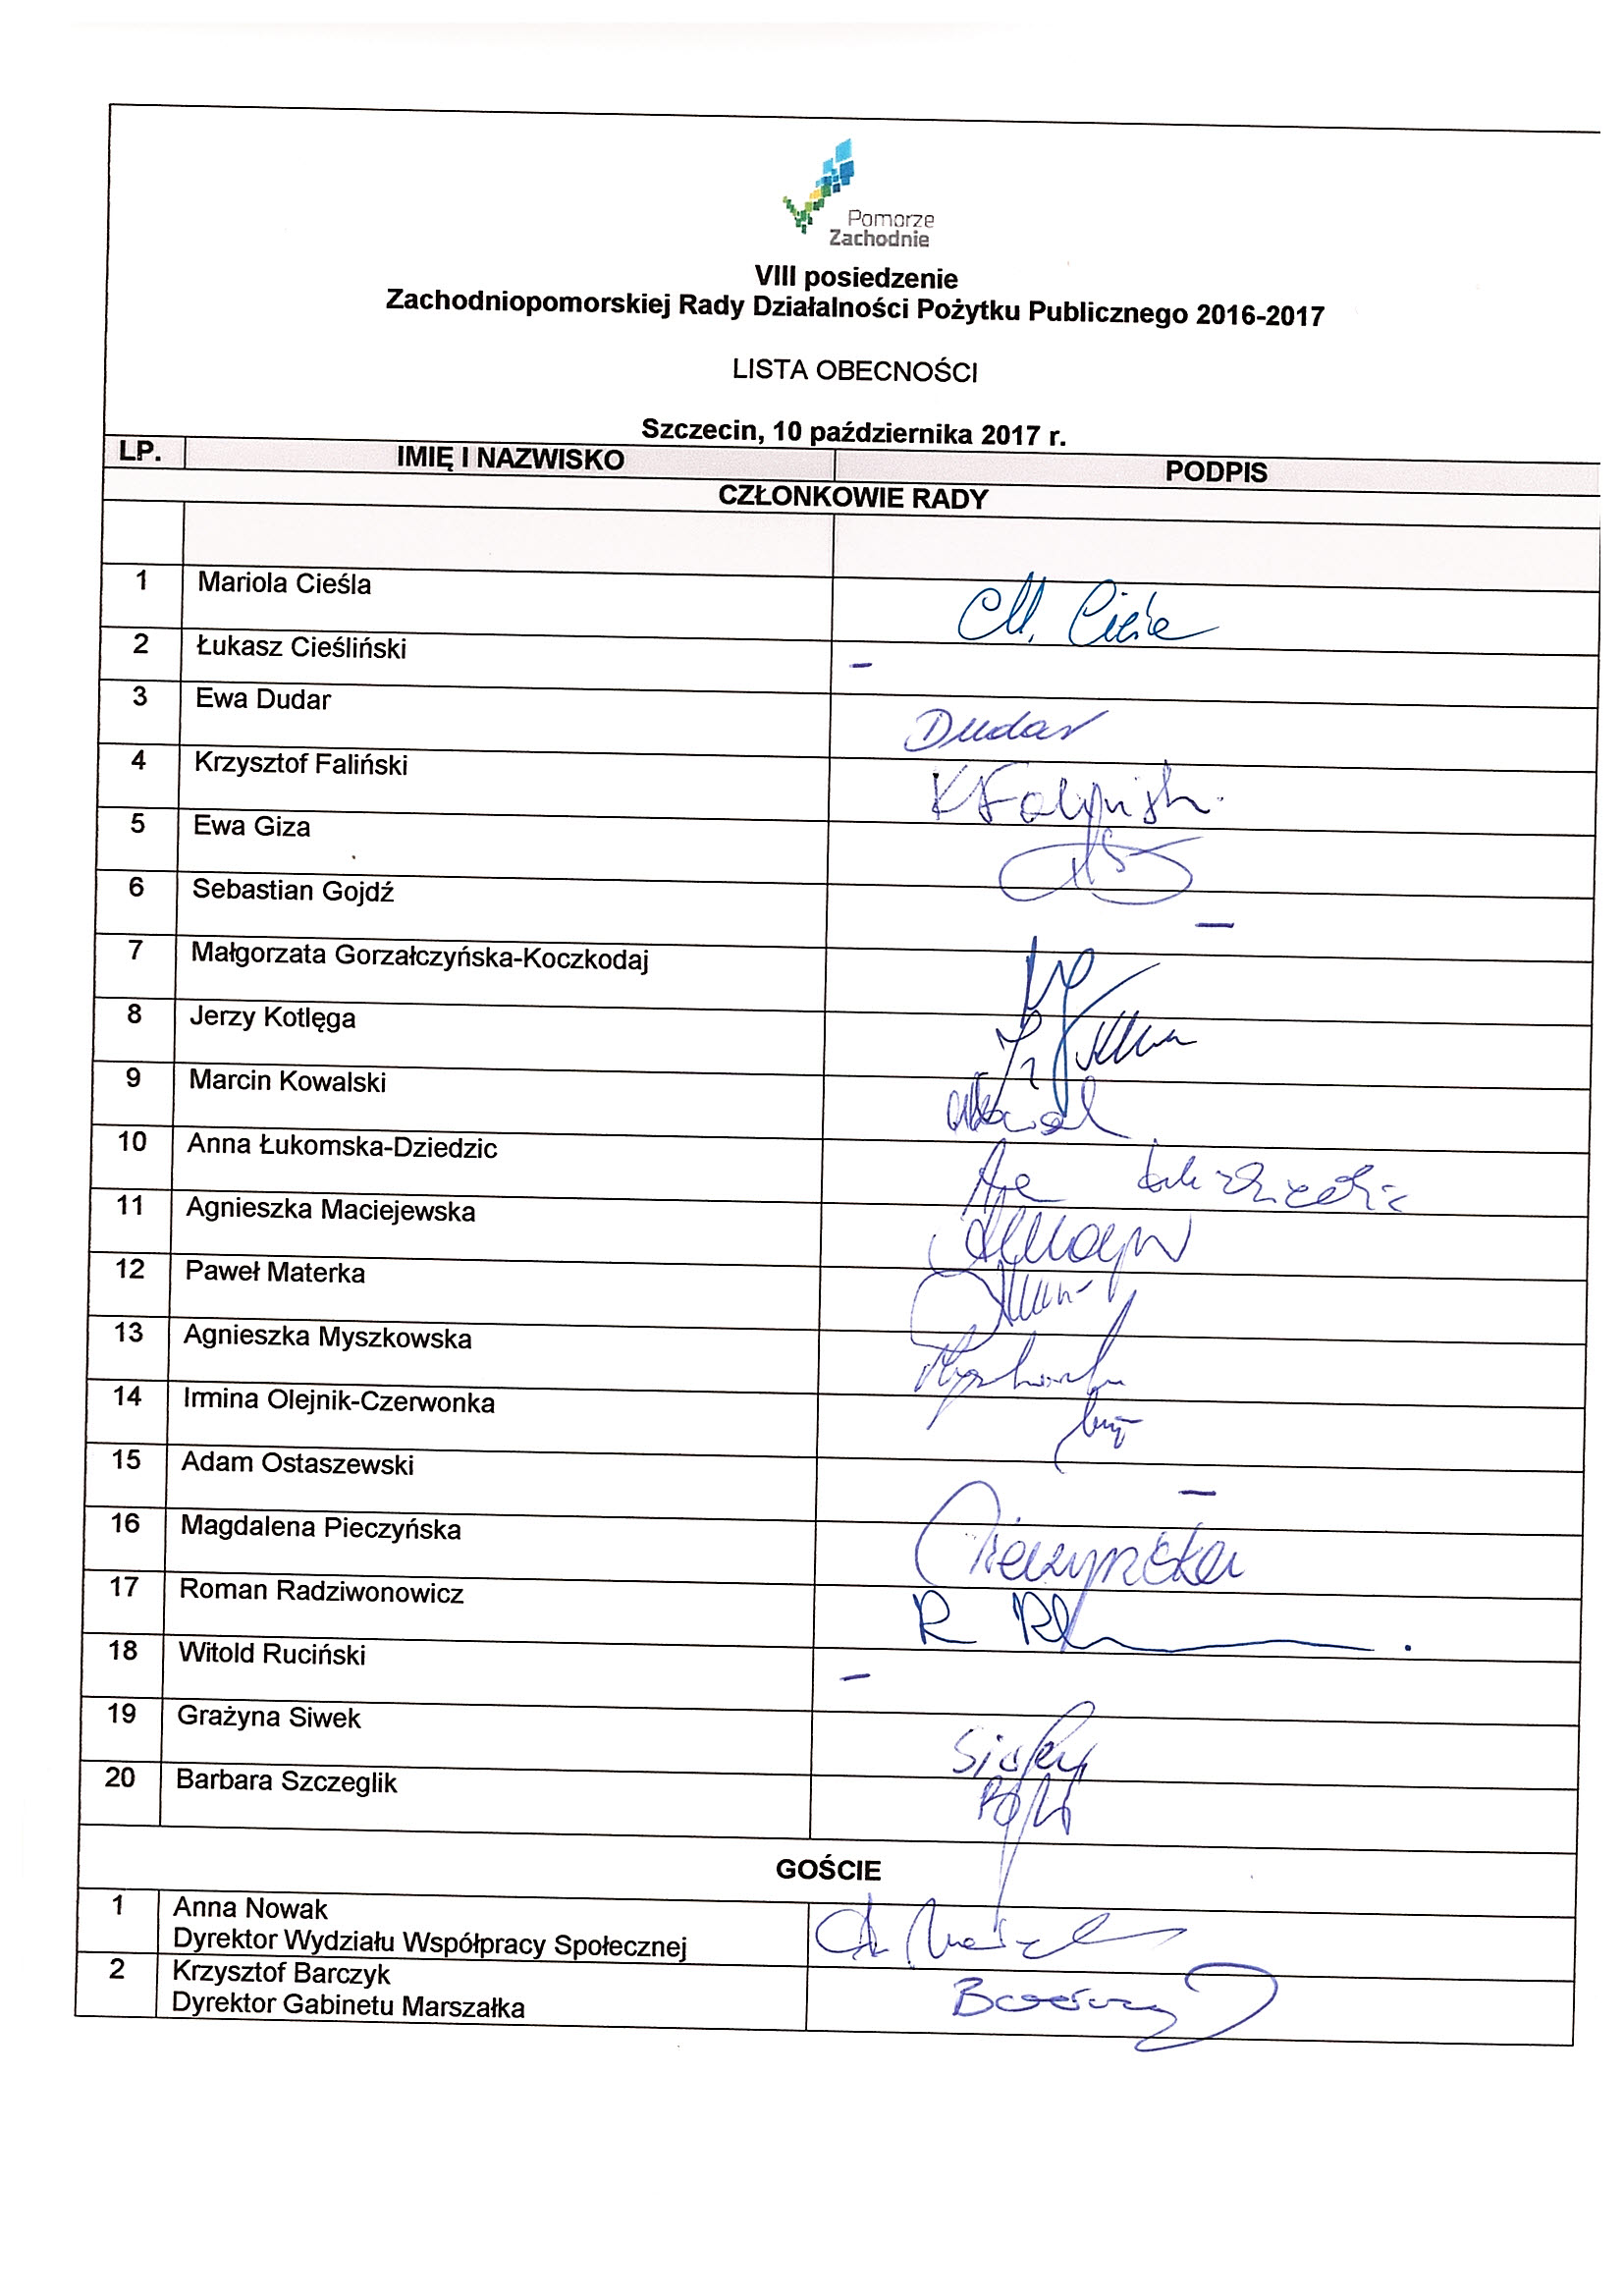 Pomorze
Zachodnie
VIII posiedzenie
Zachodniopomorskiej Rady Działalności Pożytku Publicznego 2016-2017
LISTA OBECNOŚCI
Szczecin, 10 października 2017 r.
LP. IMIĘ I NAZWISKO PODPIS
CZŁONKOWIE RADY
1 Mariola Cieśla M. Cieśla
2 Łukasz Cieśliński –
3 Ewa Dudar Dudar
4 Krzysztof Faliński
5 Ewa Giza
6 Sebastian Gojdź –
7 Małgorzata Gorzałczyńska-Koczkodaj
8 Jerzy Kotlęga
9 Marcin Kowalski
10 Anna Łukomska-Dziedzic
11 Agnieszka Maciejewska
12 Paweł Materka
13 Agnieszka Myszkowska
14 Irmina Olejnik-Czerwonka
15 Adam Ostaszewski –
16 Magdalena Pieczyńska Pieczyńska
17 Roman Radziwonowicz
18 Witold Ruciński –
19 Grażyna Siwek
20 Barbara Szczeglik
GOŚCIE
1 Anna Nowak
Dyrektor Wydziału Współpracy Społecznej
2 Krzysztof Barczyk
Dyrektor Gabinetu Marszałka